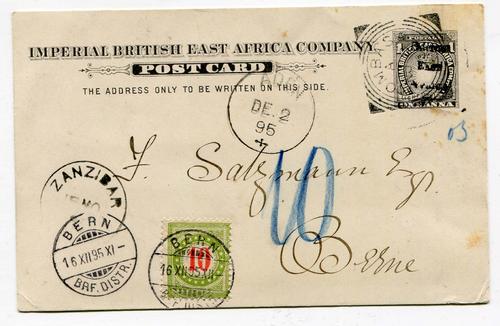 IMPERIAL BRITISH EAST AFRICA COMPANY.
POST CARD
THE ADDRESS ONLY TO BE WRITTEN ON THIS SIDE.
British
East
Africa
ONE ANNA
MBAS
ADEN
DE. 2
95
F. Salzmann Esq.
10
Berne
ZANZIBAR
BERN
16 XII 95 XI-
BRF. DISTR.
BERN
16 XII 95
10